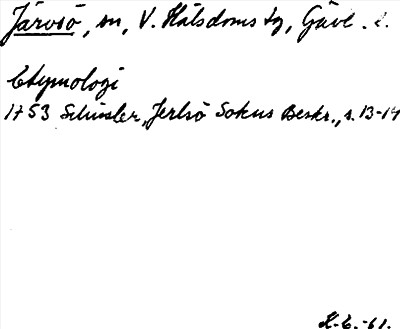 Järvsö, sn, V. Hälsdoms tg, Gävl. l.
Etymologi
1753 Schissler, Jerlsö Sokns Beskr., s. 13-14
K.E.-61.